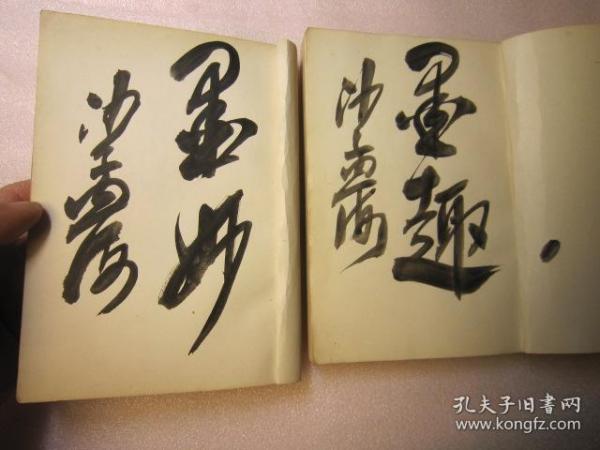 墨妙
沙孟海
墨趣
沙孟海
孔夫子旧書网
www.kongfz.com